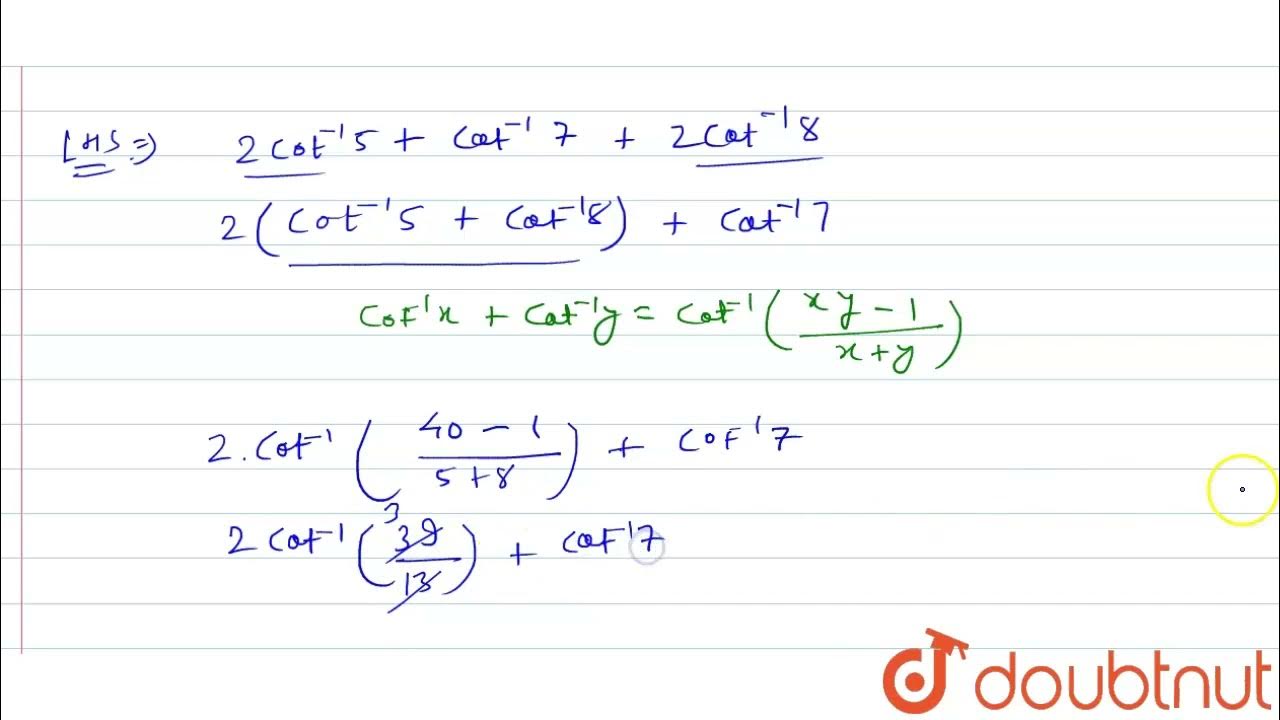 LHS ⇒ 2 cot⁻¹ 5 + cot⁻¹ 7 + 2 cot⁻¹ 8
2 (cot⁻¹ 5 + cot⁻¹ 8) + cot⁻¹ 7
cot⁻¹ x + cot⁻¹ y = cot⁻¹ ( (xy − 1) / (x + y) )
2 . cot⁻¹ ( (40 − 1) / (5 + 8) ) + cot⁻¹ 7
3
2 cot⁻¹ ( 39 / 13 ) + cot⁻¹ 7
doubtnut